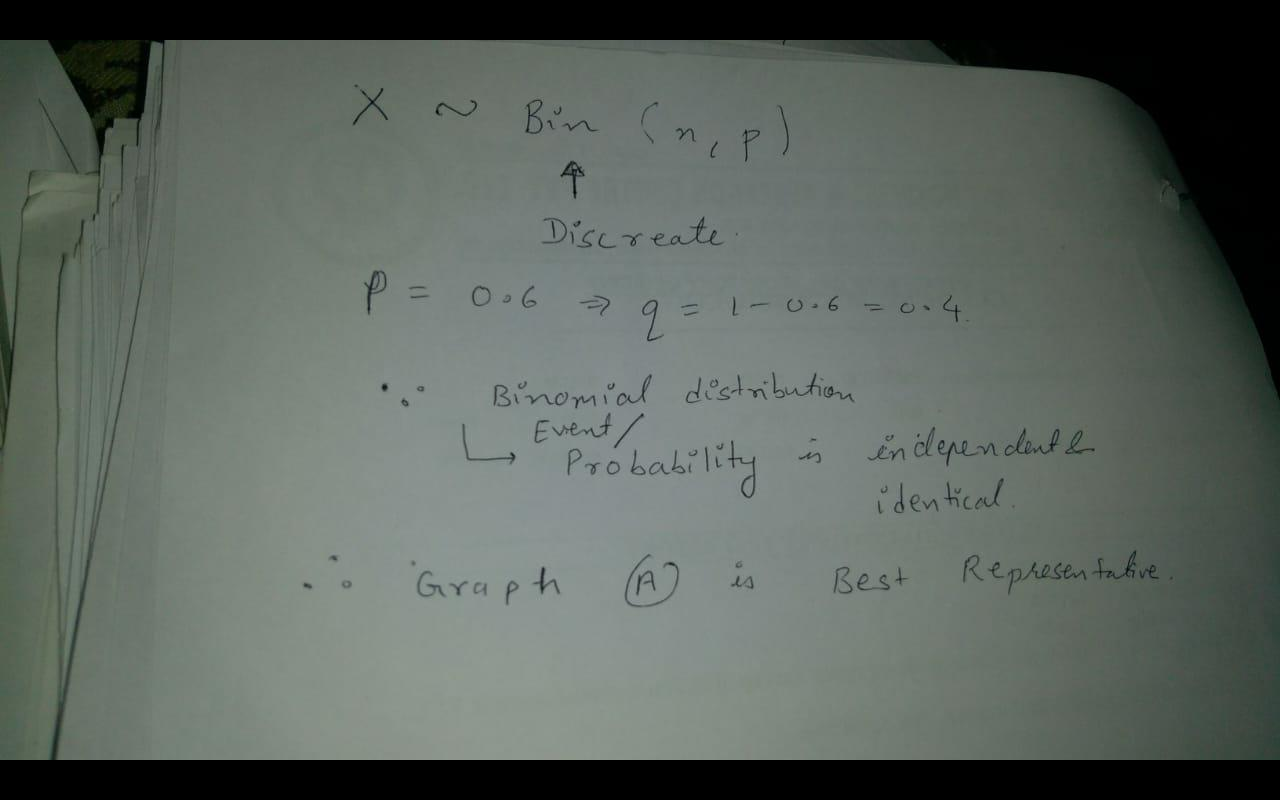 X ~ Bin (n, p)
↑
Discreate.
P = 0.6 ⇒ q = 1 - 0.6 = 0.4.
∵ Binomial distribution
↳ Event/
Probability is independent &
identical.
∴ Graph (A) is Best Representative.